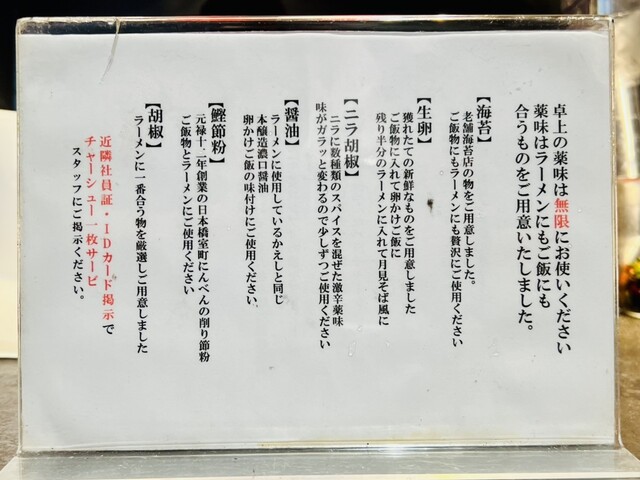 卓上の薬味は無限にお使いください
薬味はラーメンにもご飯にも
合うものをご用意いたしました。
【海苔】
老舗海苔店の物をご用意しました。
ご飯物にもラーメンにも贅沢にご使用ください
【生卵】
獲れたての新鮮なものをご用意しました
ご飯物に入れて卵かけご飯に
残り半分のラーメンに入れて月見そば風に
【ニラ胡椒】
ニラに数種類のスパイスを混ぜた激辛薬味
味がガラッと変わるので少しずつご使用ください
【醤油】
ラーメンに使用しているかえしと同じ
本醸造濃口醤油
卵かけご飯の味付けにご使用ください。
【鰹節粉】
元禄十二年創業の日本橋室町にんべんの削り節粉
ご飯物とラーメンにご使用ください
【胡椒】
ラーメンに一番合う物を厳選しご用意しました
近隣社員証・IDカード掲示で
チャーシュー一枚サービ
スタッフにご掲示ください。